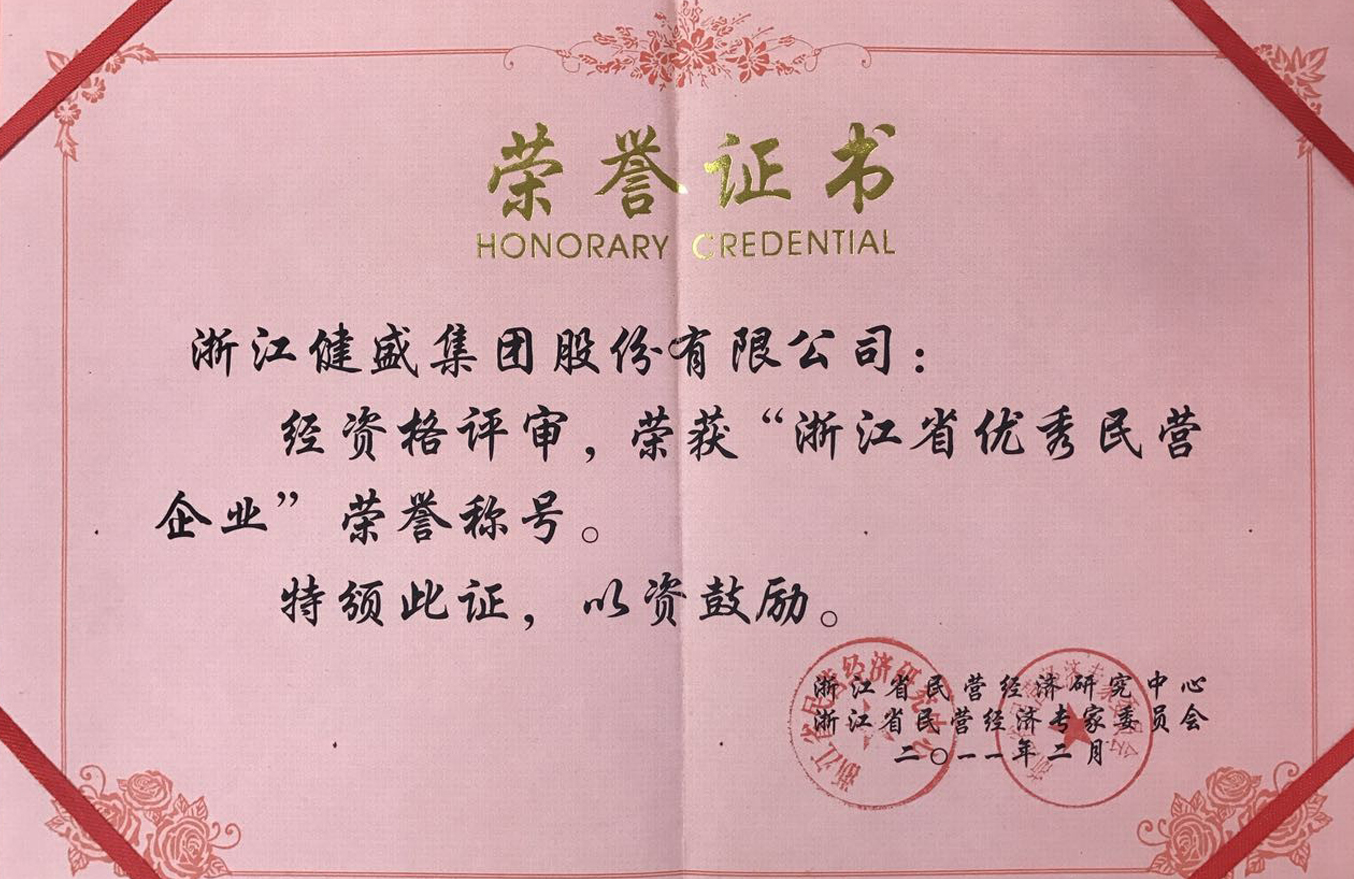 荣誉证书
HONORARY CREDENTIAL
浙江健盛集团股份有限公司：
经资格评审，荣获“浙江省优秀民营
企业”荣誉称号。
特颁此证，以资鼓励。
浙江省民营经济研究中心
浙江省民营经济专家委员会
二〇一一年二月
浙江省民营经济研究中心